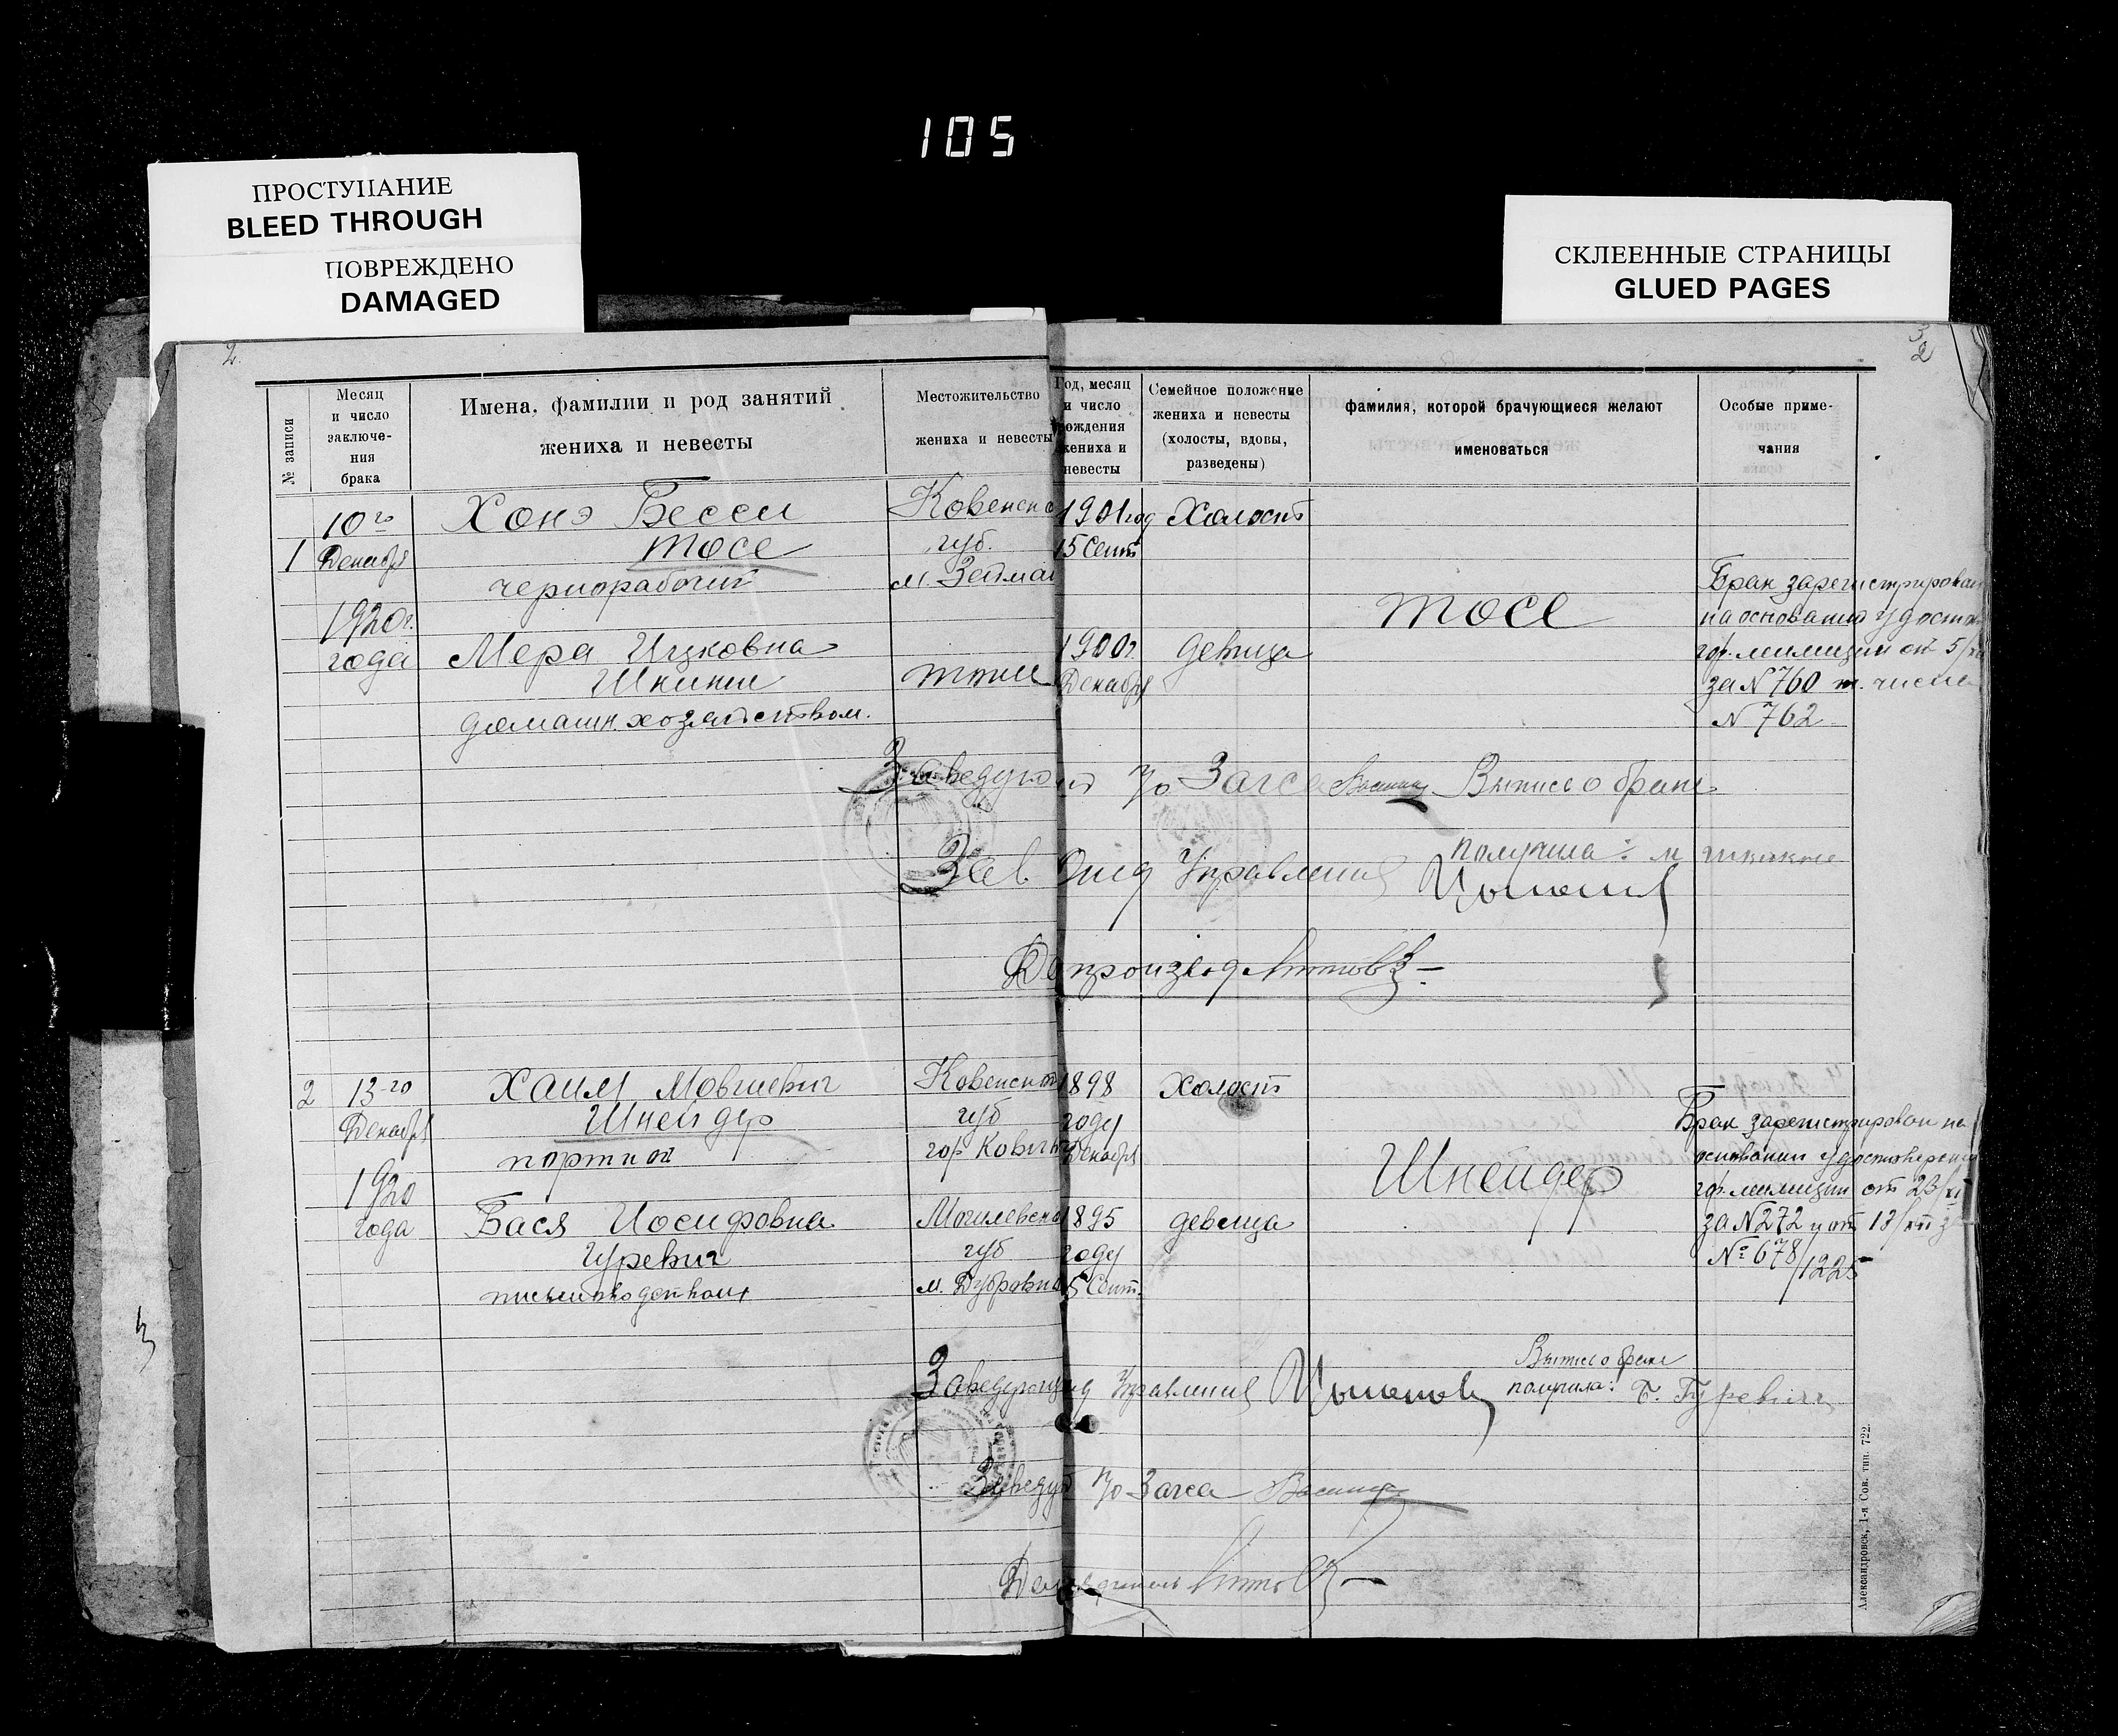 105
ПРОСТУПАНИЕ
BLEED THROUGH
ПОВРЕЖДЕНО
DAMAGED
СКЛЕЕННЫЕ СТРАНИЦЫ
GLUED PAGES
2.
3
2
№ записи
Месяц
и число
заключе-
ния
брака
Имена, фамилии и род занятий
жениха и невесты
Местожительство
жениха и невесты
Год, месяц
и число
рождения
жениха и
невесты
Семейное положение
жениха и невесты
(холосты, вдовы,
разведены)
фамилия, которой брачующиеся желают
именоваться
Особые приме-
чания
1
10го
Декабря
1920 г.
года
Хонэ Бесси
Тосе
чернорабочий
Ковенско
губ.
м.
1901 год
15 Сент
Холост
Мера Ицковна
домашн. хозяйством.
тоже
1900 г.
Декабря
девица
Тосе
Брак зарегистрирован
на основании удостов
гор. милиции от 5/XII
за N 760 т. числа
N 762
Заведующий п/о Загса Выпись о браке
получила: м
Зав Отд Управления
Делопроизвод
2
13-го
Декабря
1920
года
Хаим Мовшевич
Шнейдер
портной
Ковенской
губ
гор Ковны
1898
году
Декабря
Холост
Бася Иосифовна
Гуревич
Могилевско
губ
м. Дубровна
1895
году
5 Сент.
девица
Шнейдер
Брак зарегистрирован на
основании удостоверения
гор. милиции от 23/XI
за N 272 и от 13/XII з
№ 678/1225
Заведующий Отд Управления
Выпись о браке
получила: Б. Гуревич
Заведующ п/о Загса
Александровск, 1-я Сов. тип. 722.
3